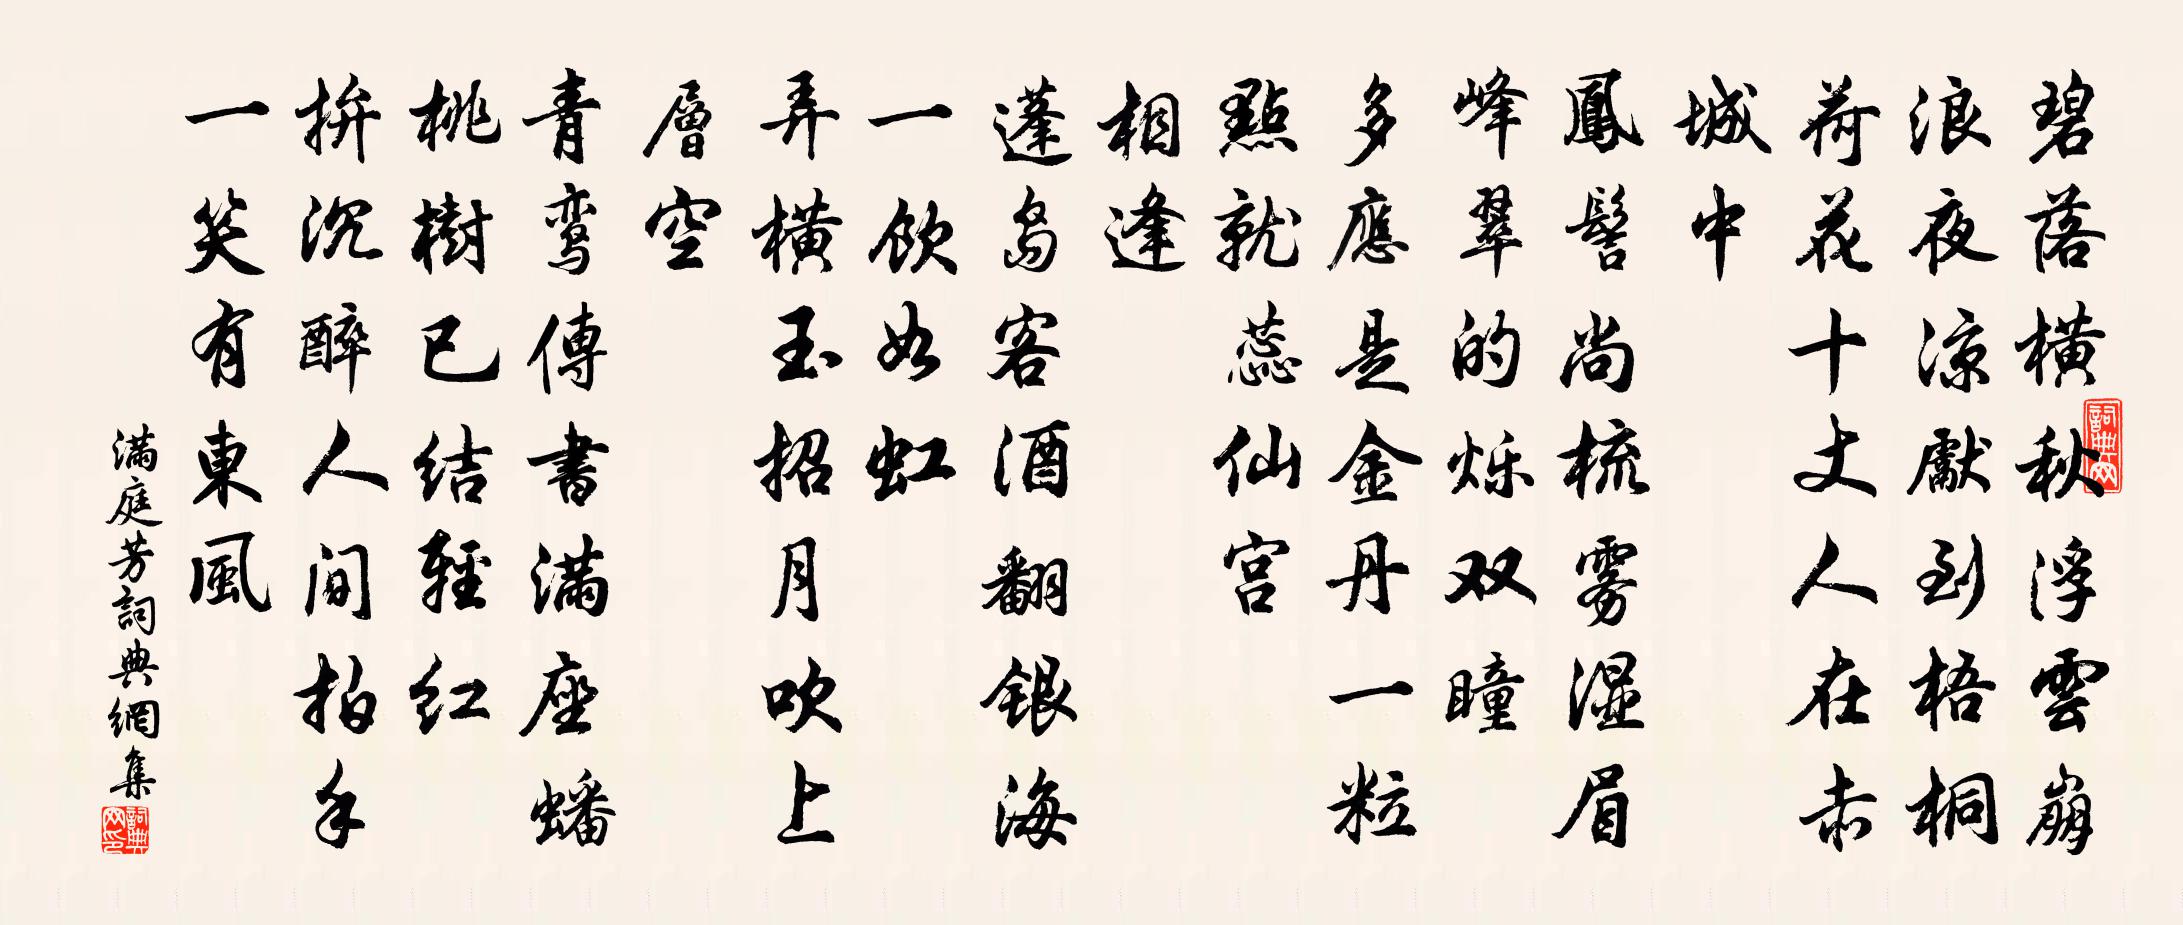 碧落橫秋浮雲崩
浪夜涼獻到梧桐
荷花十丈人在赤
城中
鳳髻尚梳雾濕眉
峰翠的烁双瞳
多應是金丹一粒
點就蕊仙宮
相逢
蓬島客酒翻銀海
一飲如虹
弄橫玉招月吹上
層空
青鸾傳書满座蟠
桃樹已结輕红
拚沉醉人间拍手
一笑有東風
满庭芳詞典網集
詞典网
詞典网印